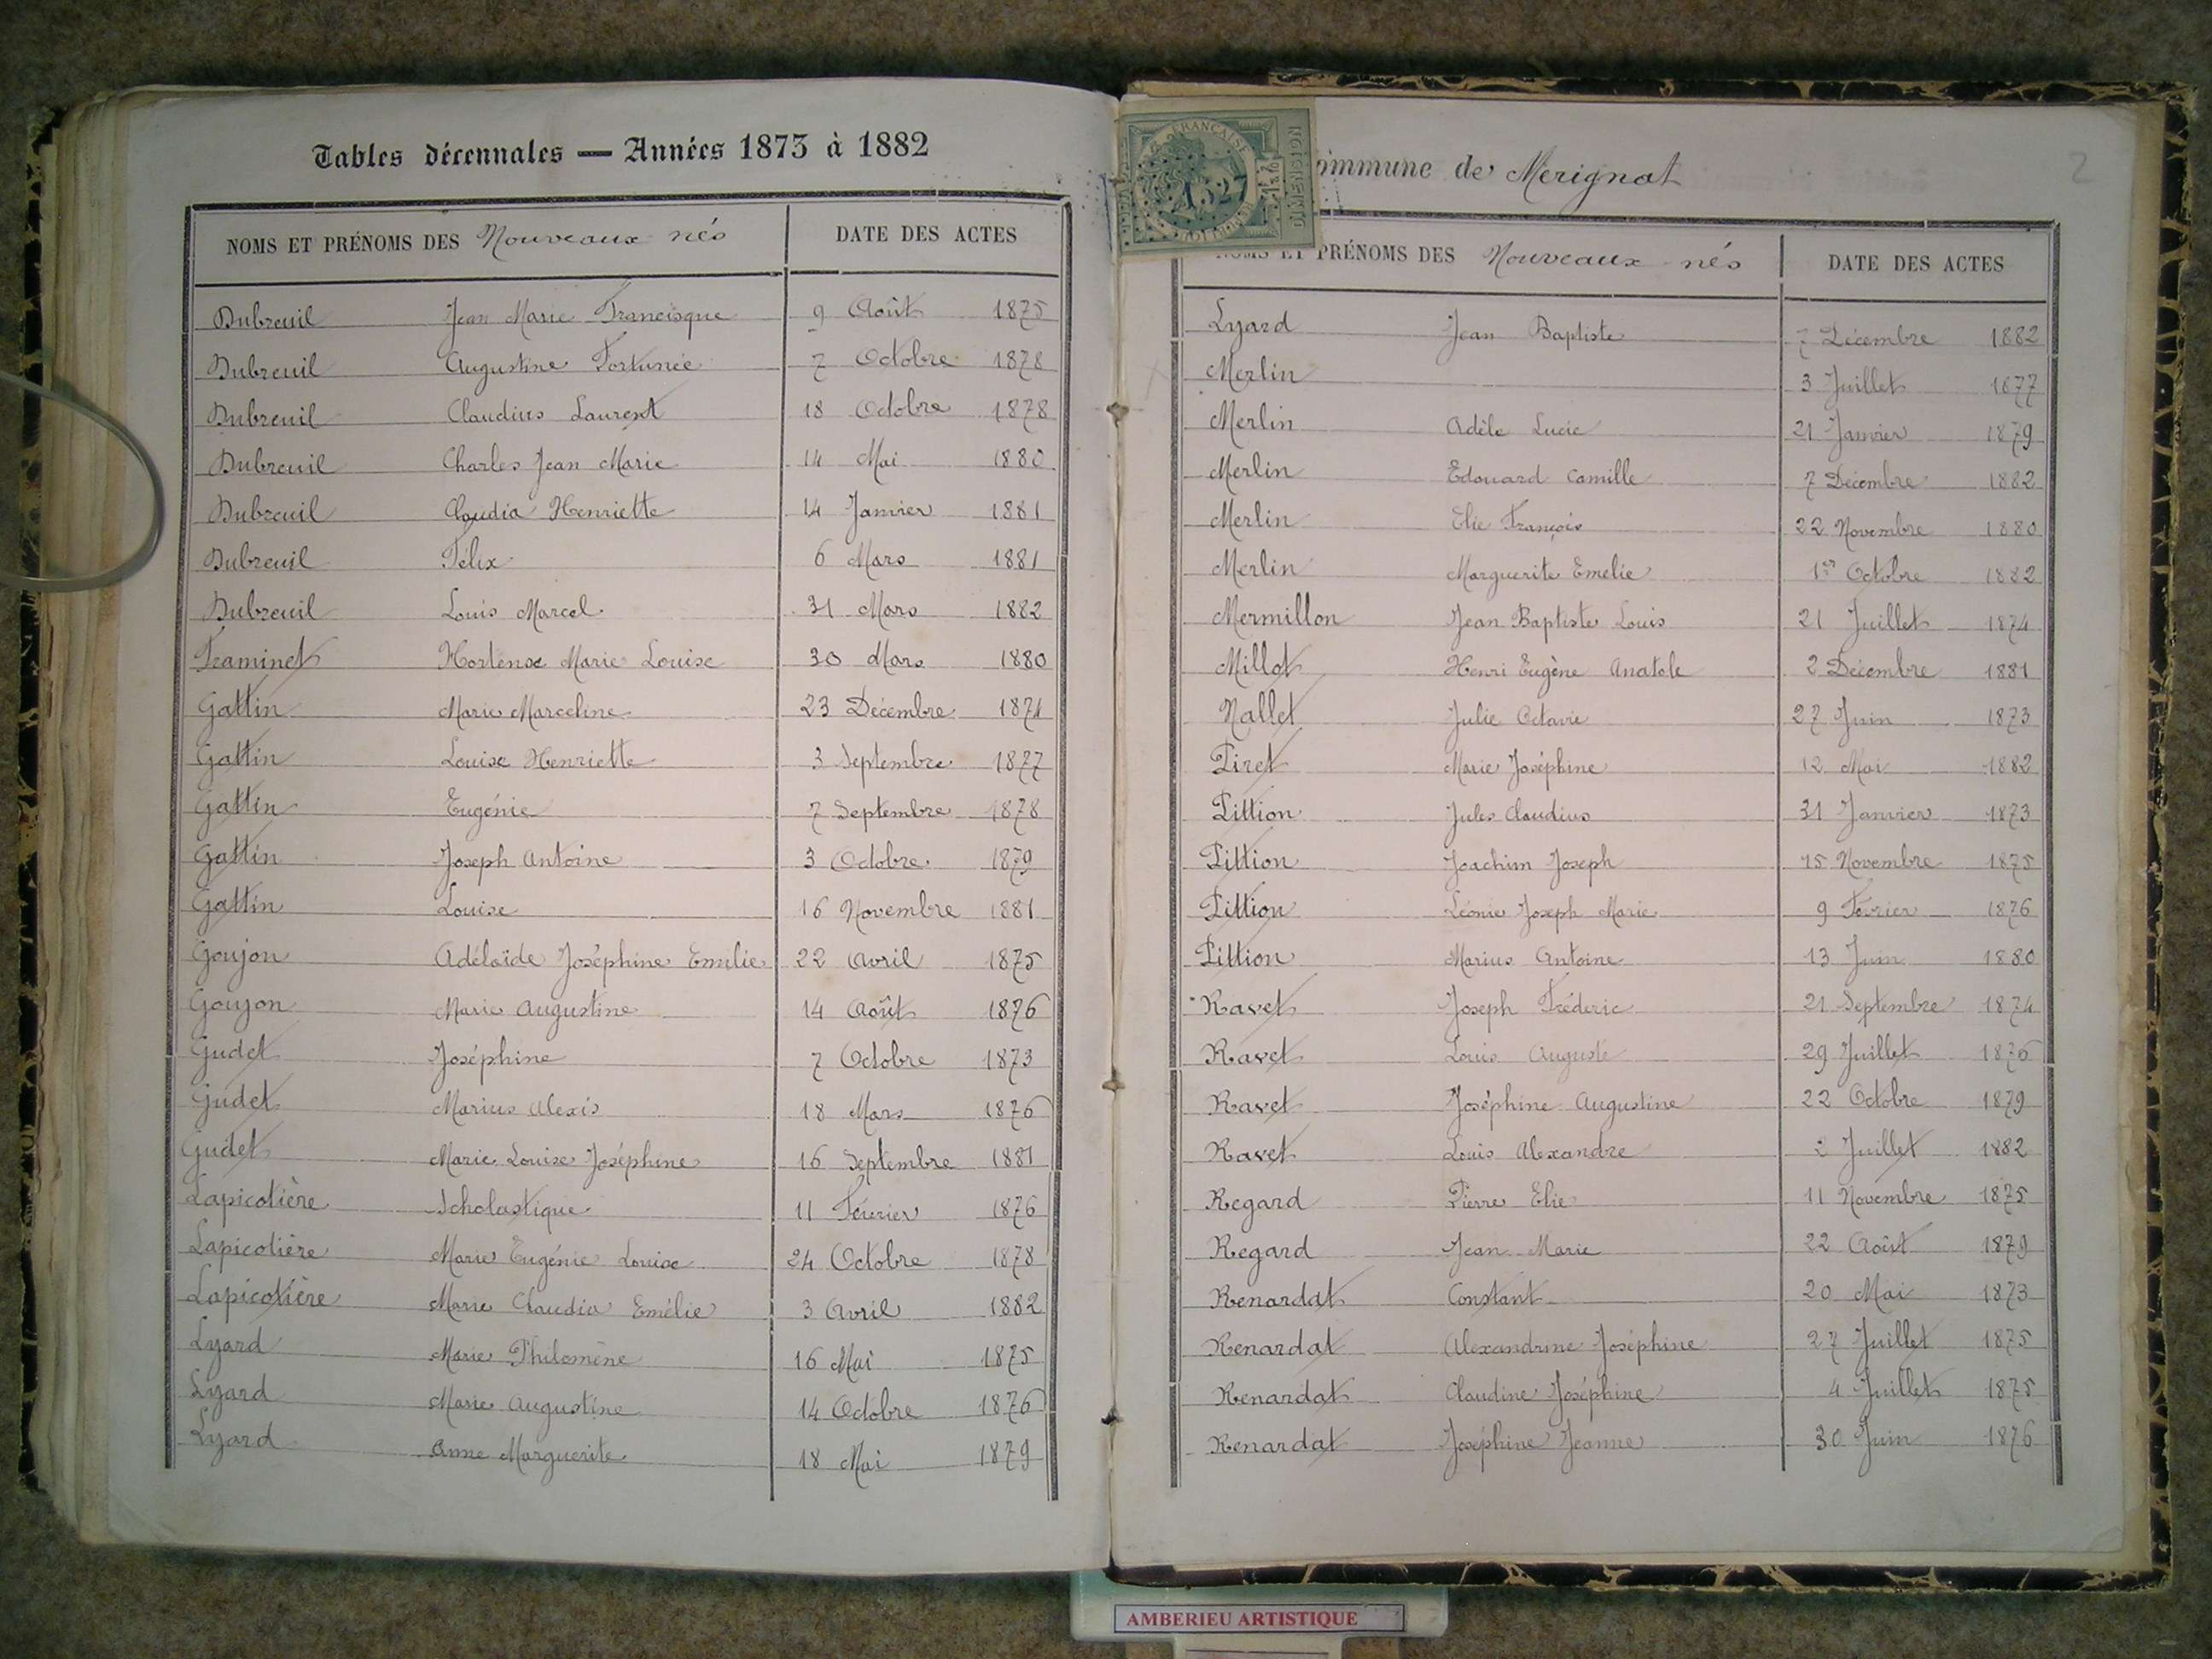 Tables décennales — Années 1873 à 1882
NOMS ET PRÉNOMS DES Nouveaux nés DATE DES ACTES
Dubreuil Jean Marie Francisque 9 Août 1875
Dubreuil Augustine Fortunée 7 Octobre 1878
Dubreuil Claudius Laurent 18 Octobre 1878
Dubreuil Charles Jean Marie 14 Mai 1880
Dubreuil Claudia Henriette 14 Janvier 1881
Dubreuil Félix 6 Mars 1881
Dubreuil Louis Marcel 31 Mars 1882
Framinet Hortense Marie Louise 30 Mars 1880
Gattin Marie Marceline 23 Décembre 1874
Gattin Louise Henriette 3 Septembre 1877
Gattin Eugénie 7 Septembre 1878
Gattin Joseph Antoine 3 Octobre 1879
Gattin Louise 16 Novembre 1881
Goujon Adélaïde Joséphine Emélie 22 Avril 1875
Goujon Marie Augustine 14 Août 1876
Gudet Joséphine 7 Octobre 1873
Gudet Marius Alexis 18 Mars 1876
Gudet Marie Louise Joséphine 16 Septembre 1881
Lapicotière Scholastique 11 Février 1876
Lapicotière Marie Eugénie Louise 24 Octobre 1878
Lapicotière Marie Claudia Emélie 3 Avril 1882
Lyard Marie Philomène 16 Mai 1875
Lyard Marie Augustine 14 Octobre 1876
Lyard Anne Marguerite 18 Mai 1879
FRANÇAISE
DIMENSION
ommune de Merignat
2
PRÉNOMS DES Nouveaux nés DATE DES ACTES
Lyard Jean Baptiste 7 Décembre 1882
Merlin 3 Juillet 1877
Merlin Adèle Lucie 21 Janvier 1879
Merlin Edouard Camille 7 Décembre 1882
Merlin Elie François 22 Novembre 1880
Merlin Marguerite Emélie 1er Octobre 1882
Mermillon Jean Baptiste Louis 21 Juillet 1874
Millot Henri Eugène Anatole 2 Décembre 1881
Nallet Julie Octavie 27 Juin 1873
Piret Marie Joséphine 12 Mai 1882
Pittion Jules Claudius 31 Janvier 1873
Pittion Joachim Joseph 15 Novembre 1875
Pittion Léonie Joseph Marie 9 Février 1876
Pittion Marius Antoine 13 Juin 1880
Ravet Joseph Fréderic 21 Septembre 1874
Ravet Louis Auguste 29 Juillet 1876
Ravet Joséphine Augustine 22 Octobre 1879
Ravet Louis Alexandre 2 Juillet 1882
Regard Pierre Elie 11 Novembre 1875
Regard Jean Marie 22 Août 1879
Renardat Constant 20 Mai 1873
Renardat Alexandrine Joséphine 27 Juillet 1875
Renardat Claudine Joséphine 4 Juillet 1875
Renardat Joséphine Jeanne 30 Juin 1876
AMBERIEU ARTISTIQUE